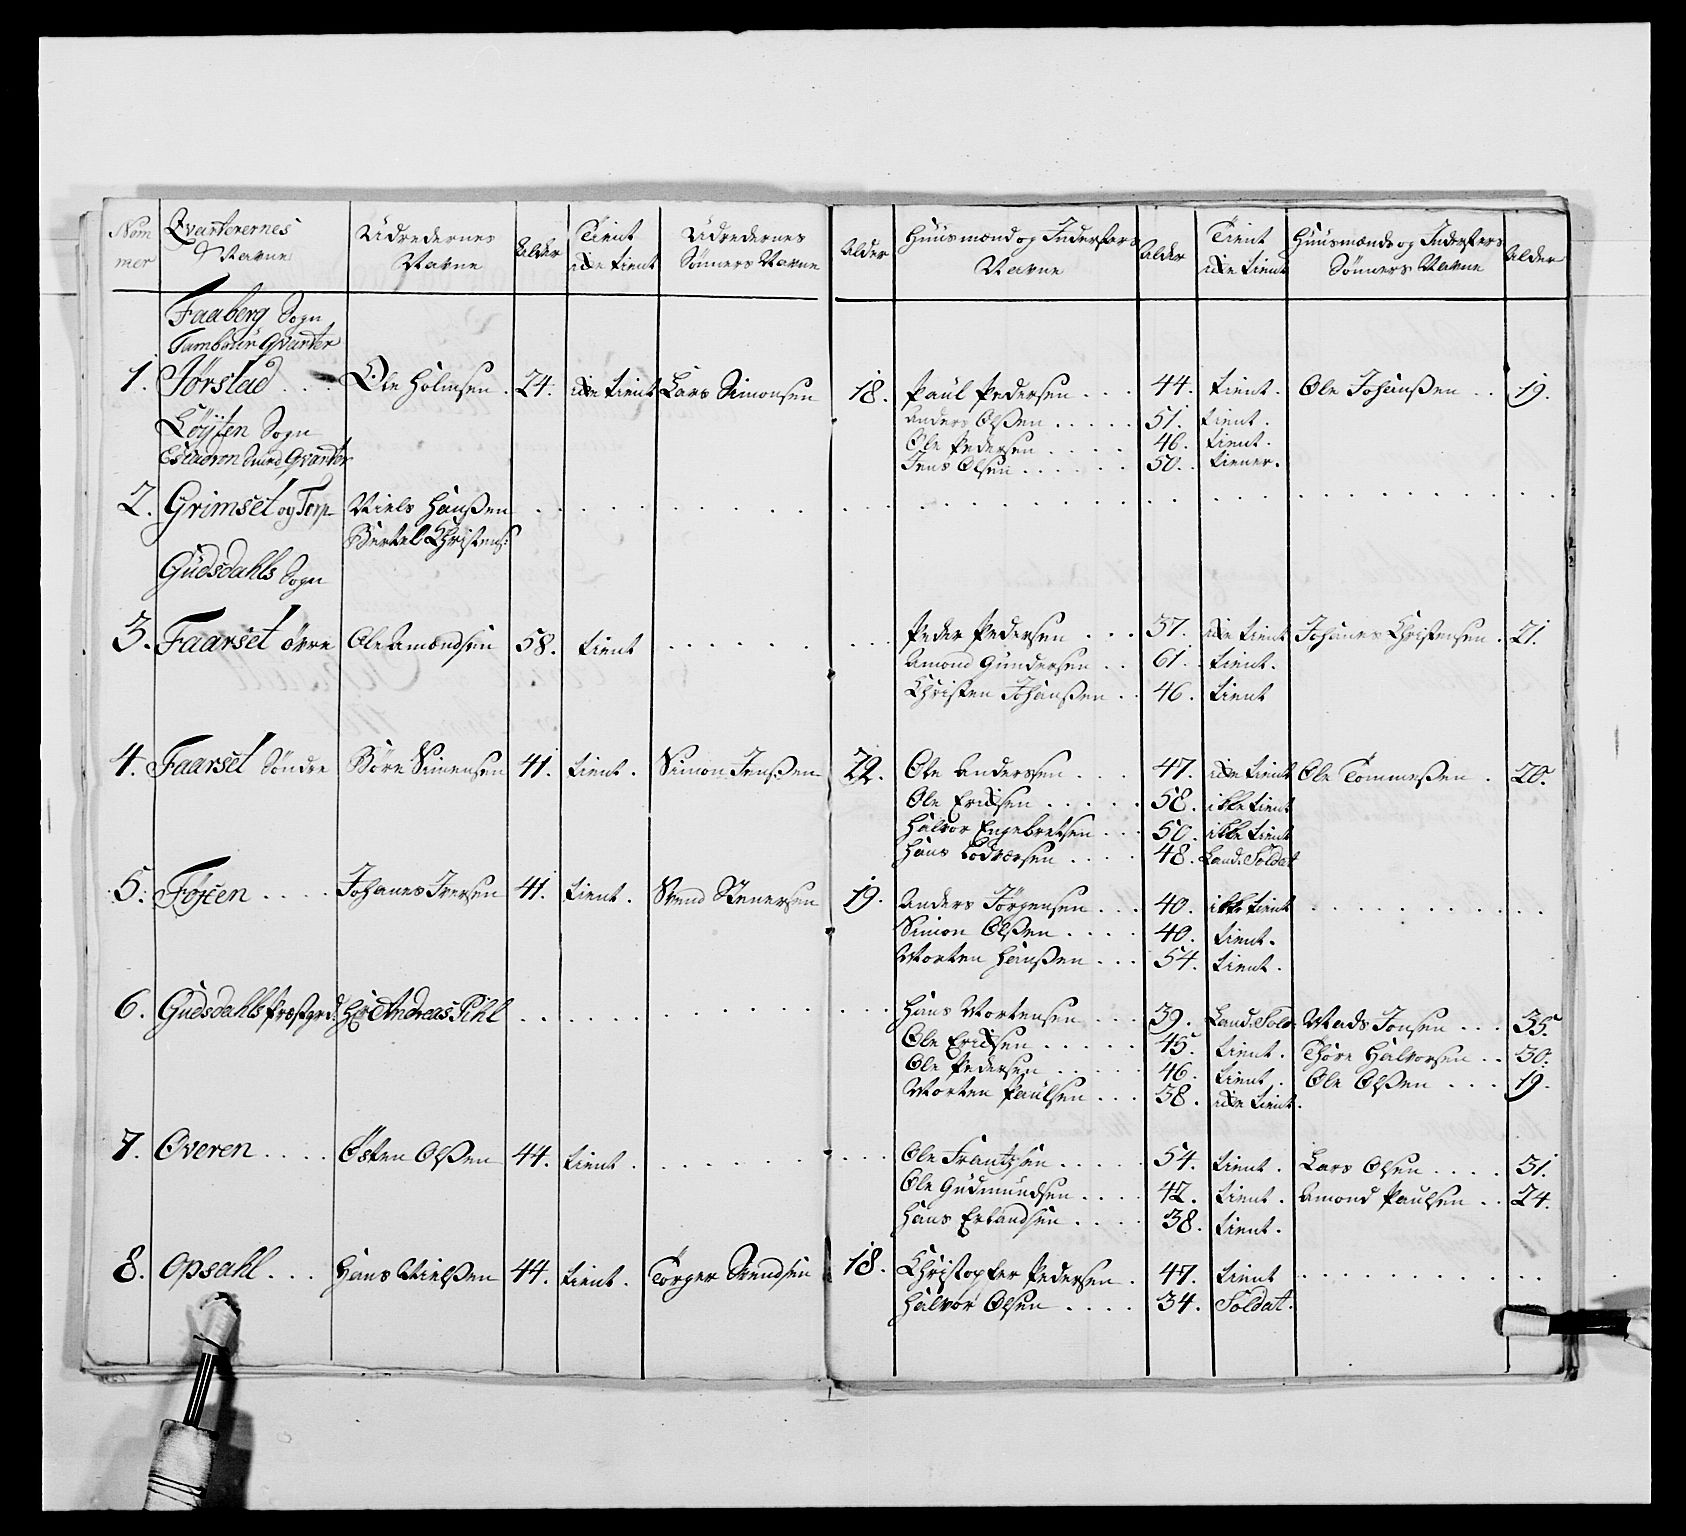 Num
mer
Qvarterernes
Navne
Udredernes
Navne
Alder
Tient
ikke tient
Udredernes
Sönners Navne
Alder
Huusmænd og Inderster
Navne
Alder
Tient
ikke tient
Huusmænds og Indersters
Sönners Navne
Alder
Faaberg Sogn
Tambour Qvarter
1. Jørstad . . Ole Holmsen . 24. ikke tient Lars Simonsen 18. Paul Pedersen . . . 44. tient. Ole Johanßen . . 19.
Anders Olßen . . . . . 51. tient.
Ole Pedersen . . . . 46. tient.
Jens Olsen . . . . . . 50. tiener.
Løyten Sogn
Escadron Qvarter
2. Grimset og Torp Niels Hanßen
Bertel Christens:
Gudsdahls Sogn
3. Faarset övre Ole Amondsen 58. tient . . . . . Peder Pedersen . . . 37. ikke tient Johannes Christensen . 21.
Amond Gundersen . . 61. tient.
Christen Johanßen . . 46. tient
4. Faarset Söndre Böre Simensen 41. tient. Simon Jenßen 22. Ole Anderssen . . . 47. ikke tient Ole Tommeßen . 20.
Ole Ericksen . . . . . 58. ikke tient
Halvor Engebretsen . . 50. ikke tient
Hans Lodvorsen . . . . 48. Land. Soldat
5. Føften . . . . Johanes Iversen 41. tient. Svend Stenersen 19. Anders Jörgensen . . . 40. ikke tient
Simon Olßen . . . . 40. tient.
Morten Hanßen . . . 54. tient.
6. Gudsdahls Præstgrd: Hr Andreas Pihl . . . . . Hans Mortensen . . . 39. Land. Sold. Mads Jonsen . . . 35.
Ole Ericksen . . . . . 45. tient. Thöre Halvorsen . . 30.
Ole Pedersen . . . . . 46. tient. Ole Olßen . . . 19.
Morten Paulsen . . . 38. ikke tient.
7. Overen . . . . Östen Olßen 44. tient. . . . . . Ole Frantzsen . . . . . 54. tient. Lars Olsen . . . . 31.
Ole Gudmundsen . . . . 42. tient. Amond Paulsen . . 24.
Hans Erlandsen . . . . 38. tient.
8. Opsahl . . . Hans Nielßen 44. tient. Torger Svendsen 18. Christopher Pedersen . 47. tient
Halvor Olsen . . . . 34. Soldat.